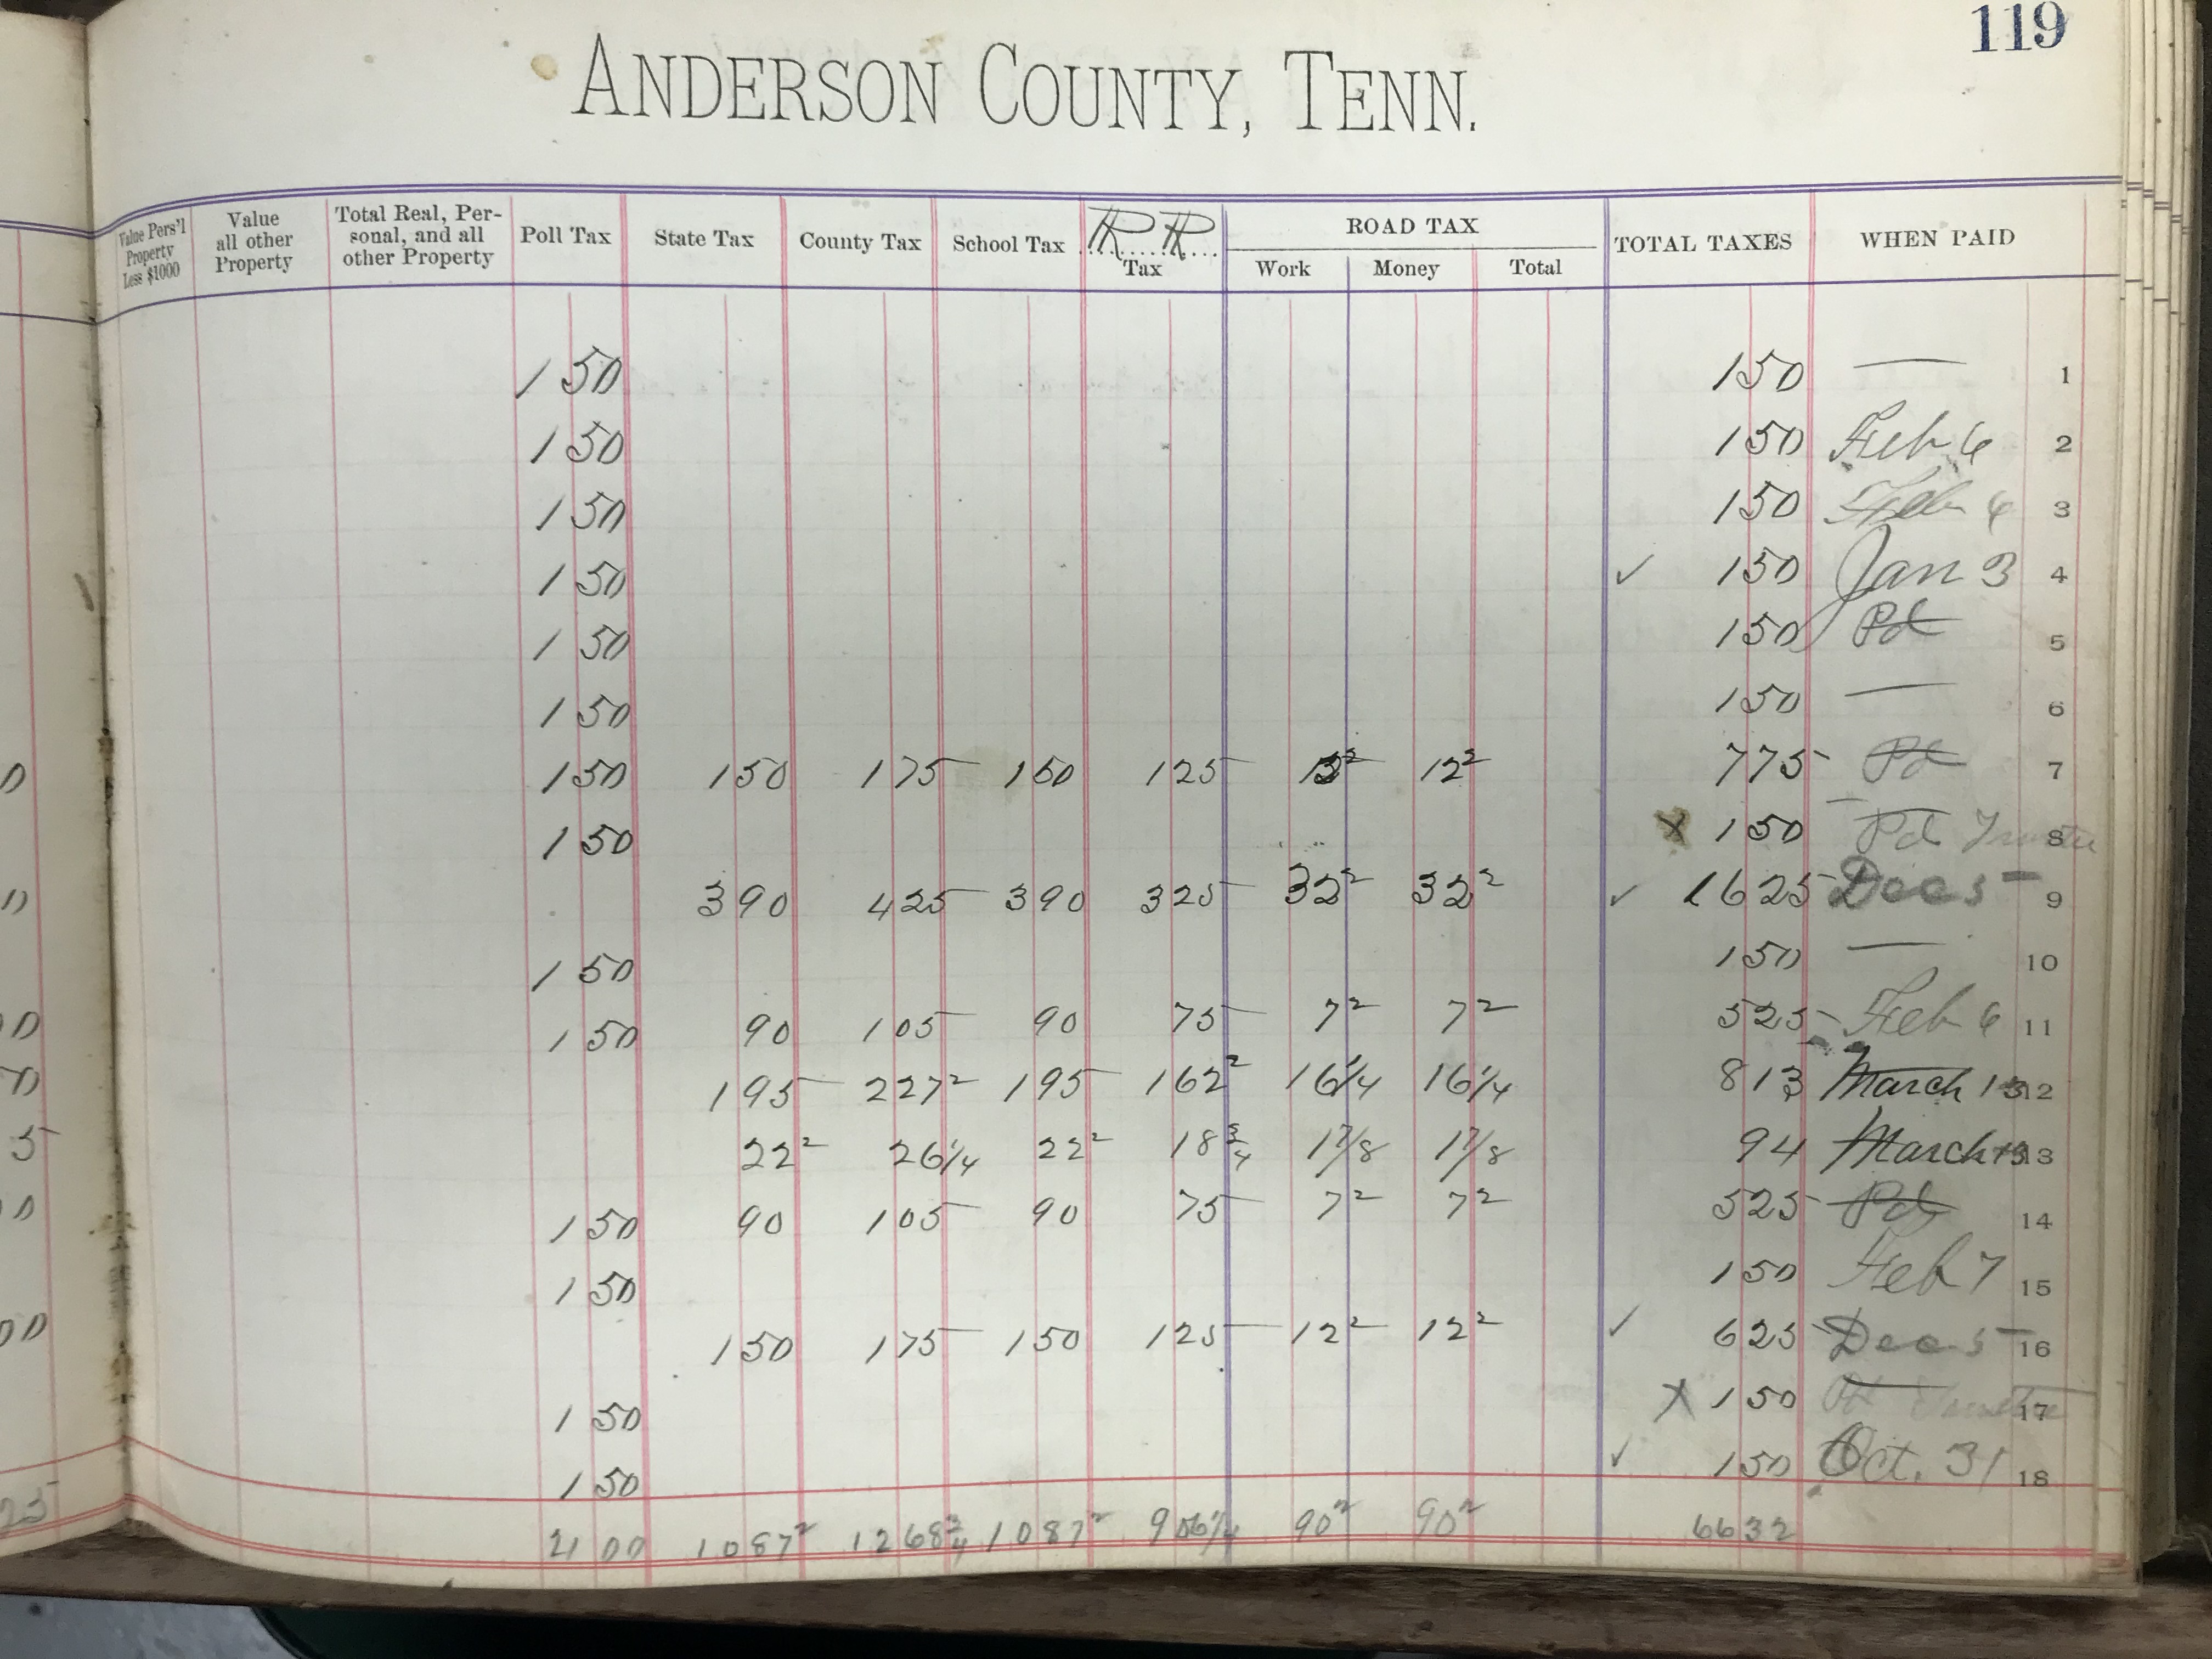 119
ANDERSON COUNTY, TENN.
Value Pers'l Property Less $1000 Value all other Property Total Real, Personal, and all other Property Poll Tax State Tax County Tax School Tax RR Tax ROAD TAX Work Money Total TOTAL TAXES WHEN PAID
1 50 1 50 — 1
1 50 1 50 Feb 6 2
1 50 1 50 Feb 6 3
1 50 ✓ 1 50 Jan 3 4
1 50 1 50 Pd 5
1 50 1 50 — 6
D 1 50 1 50 1 75 1 50 1 25 12² 12² 7 75 Pd 7
1 50 x 1 50 Pd Trustee 8
3 90 4 25 3 90 3 25 32² 32² ✓ 16 25 Dec 5 9
1 50 1 50 — 10
1 50 90 1 05 90 75 7² 7² 5 25 Feb 6 11
1 95 2 27² 1 95 1 62² 16 1/4 16 1/4 8 13 March 13 12
5 22² 26 1/4 22² 18 3/4 1 7/8 1 7/8 94 March 13 13
1 50 90 1 05 90 75 7² 7² 5 25 Pd 14
1 50 1 50 Feb 7 15
1 50 1 75 1 50 1 25 12² 12² ✓ 6 25 Dec 5 16
1 50 x 1 50 Pd Trustee 17
1 50 ✓ 1 50 Oct. 31 18
25 21 00 10 87² 12 68 3/4 10 87² 9 06 1/4 90² 90² 66 32